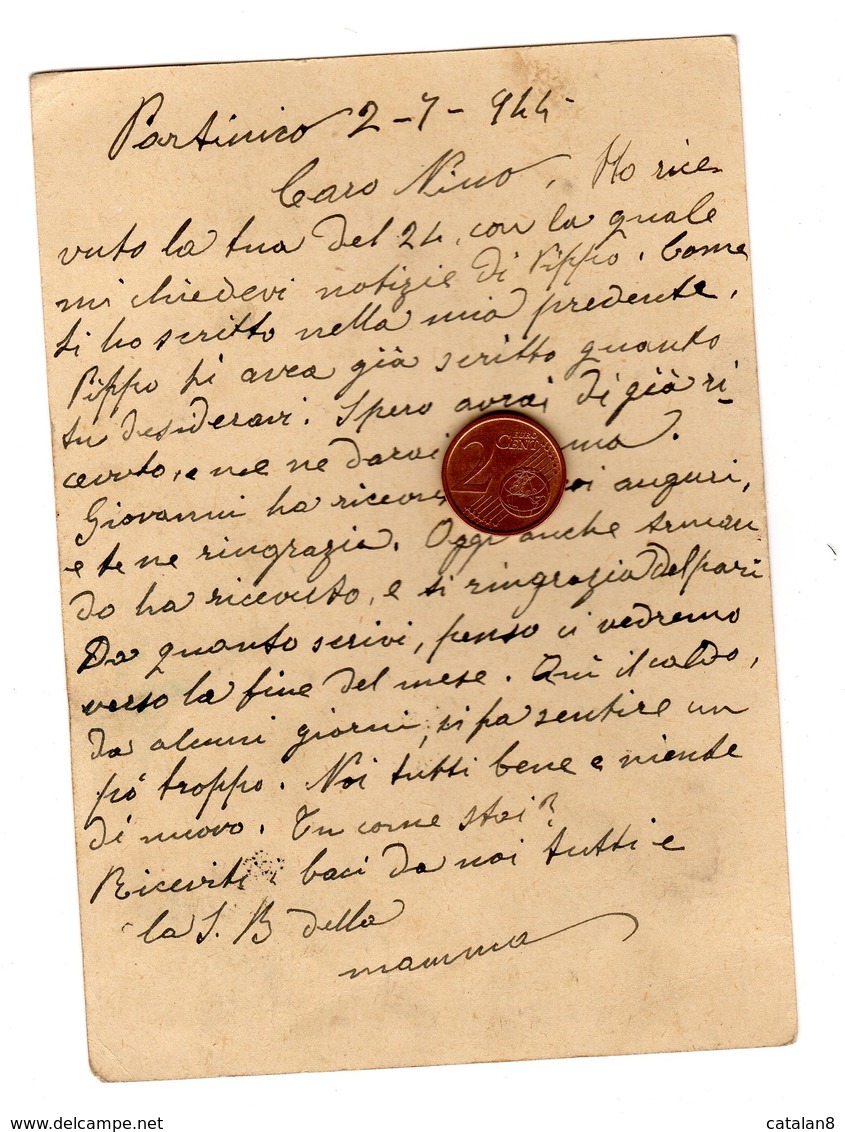 Partinico 2-7-944
Caro Nino, Ho rice
vuto la tua del 24, con la quale
mi chiedevi notizie di Pippo. Come
ti ho scritto nella mia predente,
Pippo ti avea già scritto quanto
tu desideravi. Spero avrai di già ri
cevuto, e me ne darai
Giovanni ha auguri,
e te ne ringrazia. Oggi anche Arman
do ha ricevuto, e ti ringrazia del pari
Da quanto scrivi, penso ci vedremo
verso la fine del mese. Qui il caldo,
da alcuni giorni, si fa sentire un
pó troppo. Noi tutti bene e niente
di nuovo. Tu come stai?
Riceviti baci da noi tutti e
la S. B della
mamma
2 EURO CENT
catalan8